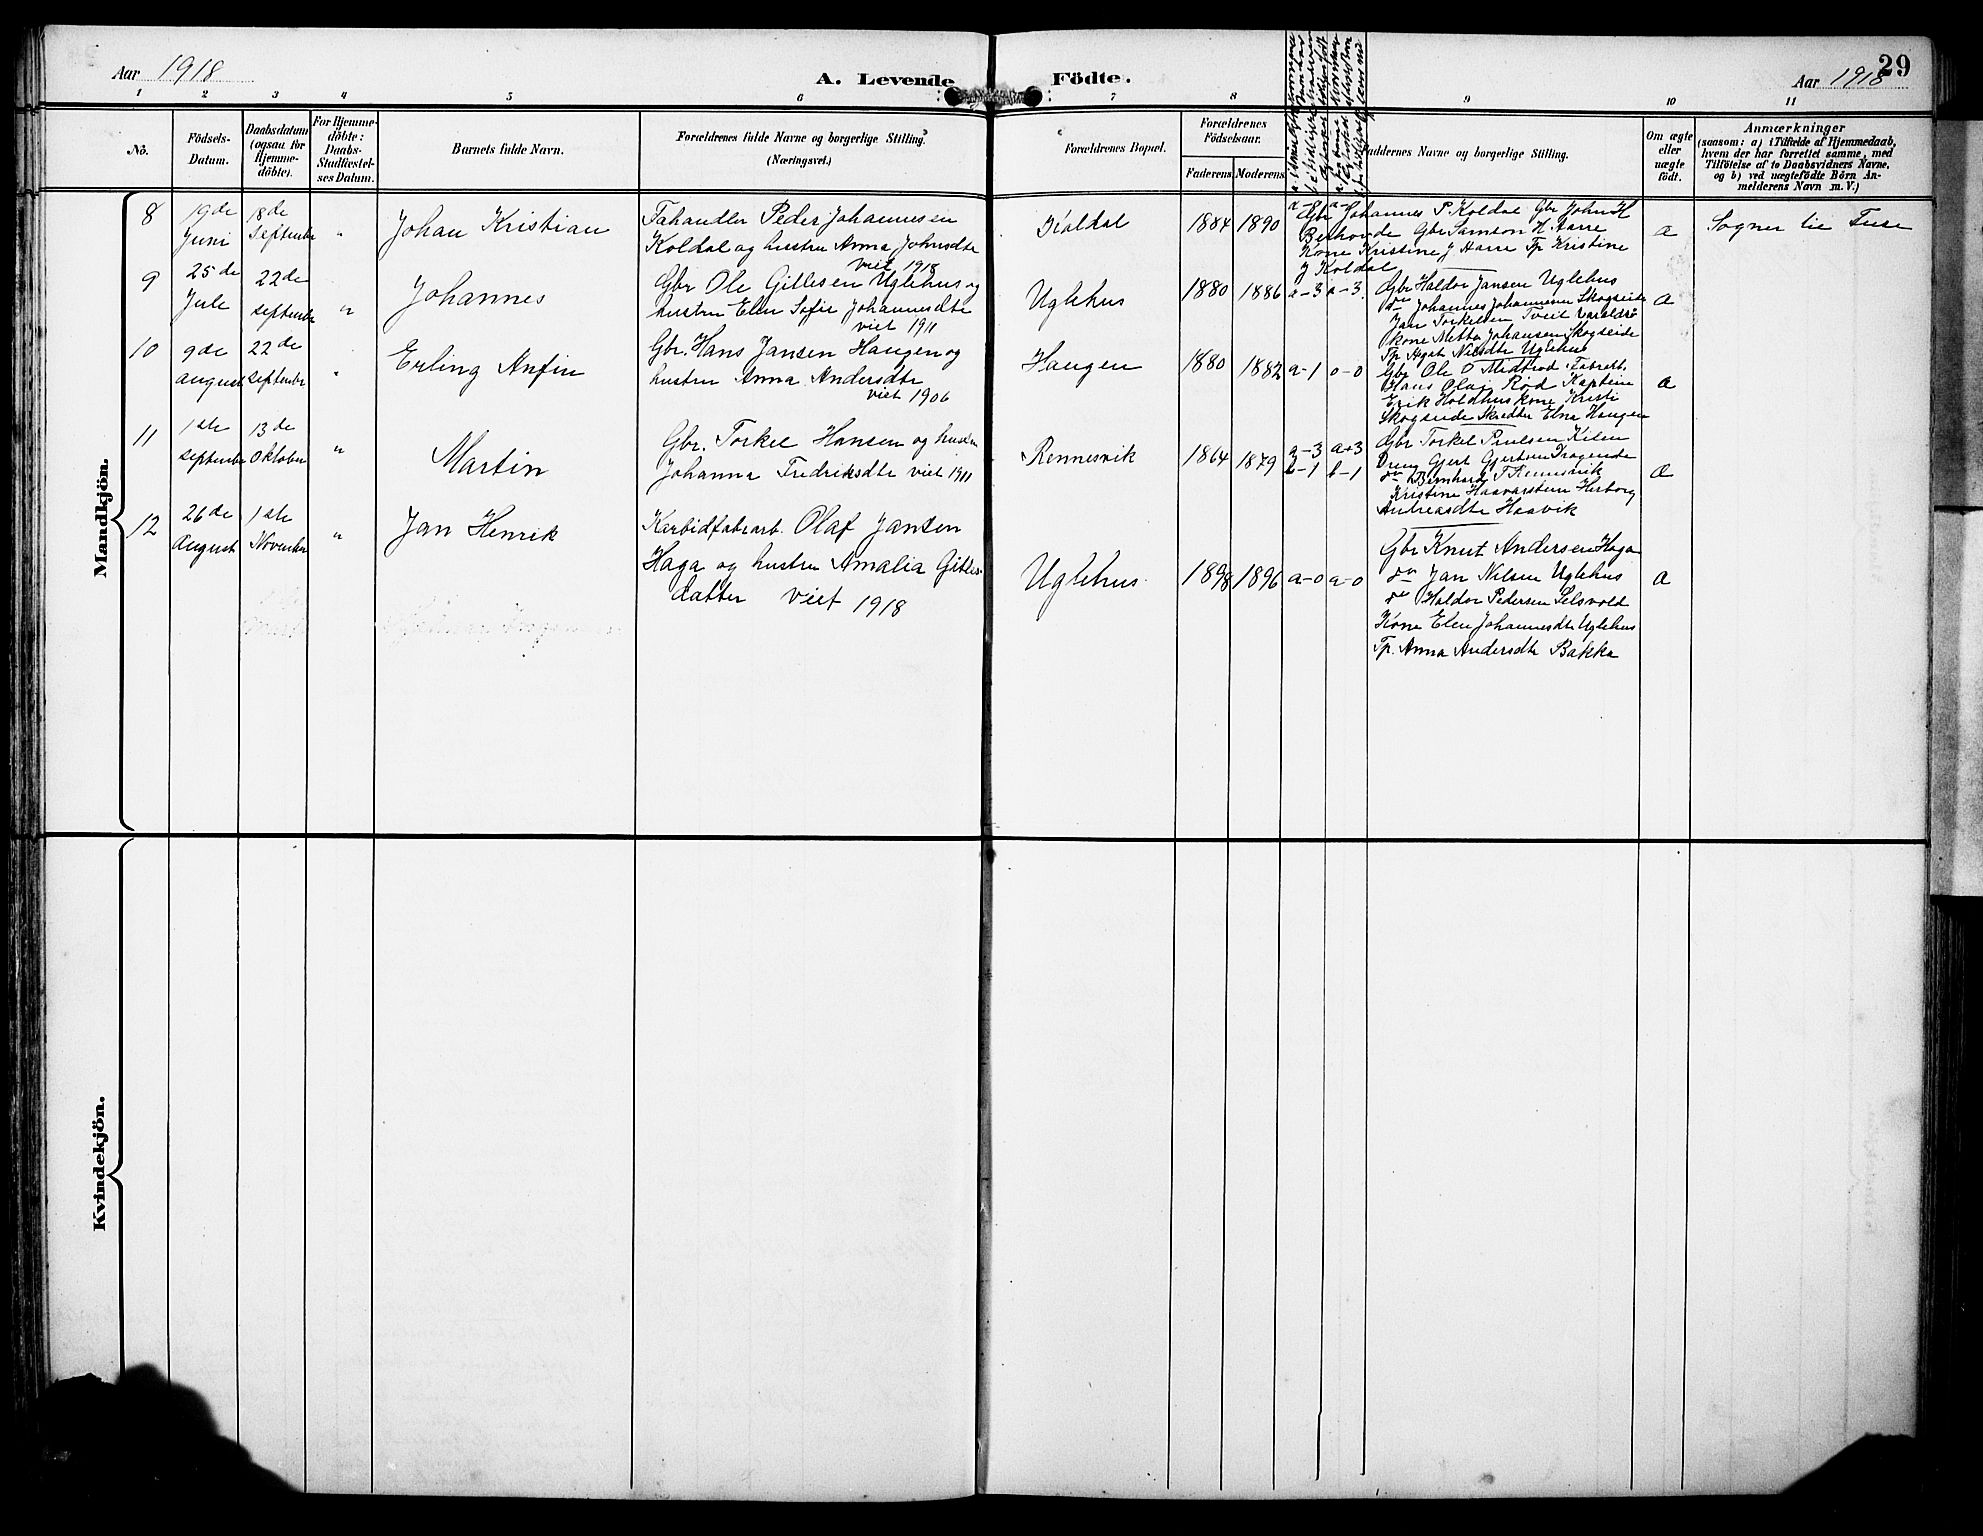 Aar 1918
A. Levende Födte.
29
Aar 1918
1 2 3 4 5 6 7 8 9 10 11
Nô.
Födsels-Datum.
Daabsdatum (ogsaa for Hjemme-döbte).
For Hjemme-döbte: Daabs-Stadfæstel-ses Datum.
Barnets fulde Navn.
Forældrenes fulde Navne og borgerlige Stilling. (Næringsvei.)
Forældrenes Bopæl.
Forældrenes Födselsaar.
Faderens
Moderens
Faddernes Navne og borgerlige Stilling.
Om ægte eller uægte födt.
Anmærkninger
(saasom: a) i Tilfælde af Hjemmedaab,
hvem der har forrettet samme, med
Tilföielse af to Daabsvidners Navne,
og b) ved uægtefödte Börn An-
melderens Navn m. V.)
Mandkjön.
8
19de Juni
18de September
"
Johan Kristian
Peder Johannesen
Koldal og hustru Anna Johnsdtr
viet 1918
Koldal
1884
1890
Gbr Johannes P. Koldal Gbr John H
Gbr Samson H. Harre
Kone Kristine J Harre Tp Kristine
J Koldal
a
Sogner til Fuse
9
25de Jule
22de September
"
Johannes
Gbr Ole Gillesen Uglehus og
hustru Elen Sofie Johannesdtr
viet 1911
Uglehus
1880
1886
a-3
a-3
Gbr Haldor Jansen Uglehus
do Johannes Johannesen Skogseide
Jan Torkelsen Tveit Varaldsö
Kone Mette Johansen Skogseide
Tp Agat Nilsdtr Uglehus
a
10
9de august
22de September
"
Erling Anfin
Gbr. Hans Jansen Haugen og
hustru Anna Andersdtr
viet 1906
Haugen
1880
1882
a-1
a-0
Gbr Ole O Midtrød Fabrarb.
Hans Olai Rød Kaptein
Erik Holdhus kone Kristi
Skogseide Elna Haugen
a
11
1ste September
13de Oktober
"
Martin
Gbr. Torkel Hansen og hustru
Johanna Fredriksdtr viet 1911
Rennesvik
1864
1879
a-3
b-1
a+3
b-1
Gbr Torkel Paulsen Kilen
Dreng Gjert Gjertsen
do Bernhard T Rennesvik
Kristine Haavarsteen Herborg
Andreasdtr Haavik
a
12
26de August
1ste November
"
Jan Henrik
Karbidfabrarb. Olaf Jansen
Haga og hustru Amalia Gilles-
datter viet 1918
Uglehus
1898
1896
a-0
a-0
Gbr Knut Andersen Haga
do Jan Nilsen Uglehus
do Haldor Pedersen Selsvold
Kone Elen Johannesdtr Uglehus
Tp. Anna Andersdtr Bakka
a
Kvindekjön.